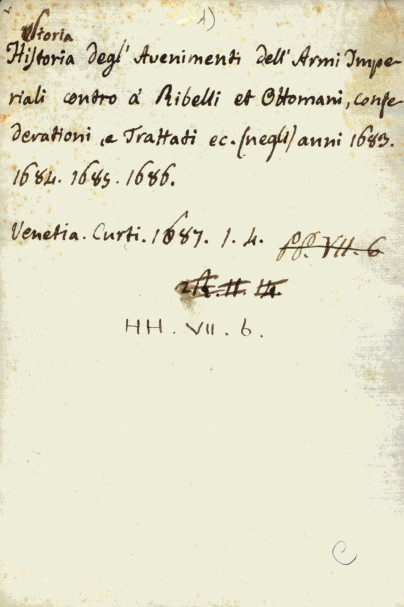 Storia
Historia degl' Avenimenti dell' Armi Impe-
riali contro a' Ribelli et Ottomani, confe
derationi, e Trattati ec. (negli) anni 1683.
1684. 1685. 1686.
Venetia. Curti. 1687. 1. 4. PP. VII. 6
HH. VII. 6.
C